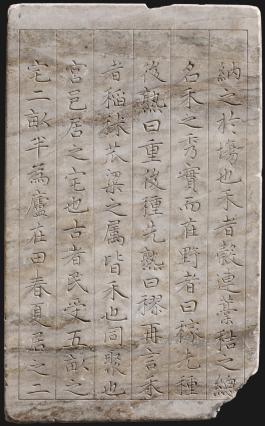 納之於場也禾者穀連藁秸之總
名禾之秀實而在野者曰稼先種
後熟曰重後種先熟曰穋再言禾
者稻秫苽粱之屬皆禾也同聚也
宮邑居之宅也古者民受五畝之
宅二畝半爲廬在田春夏居之二